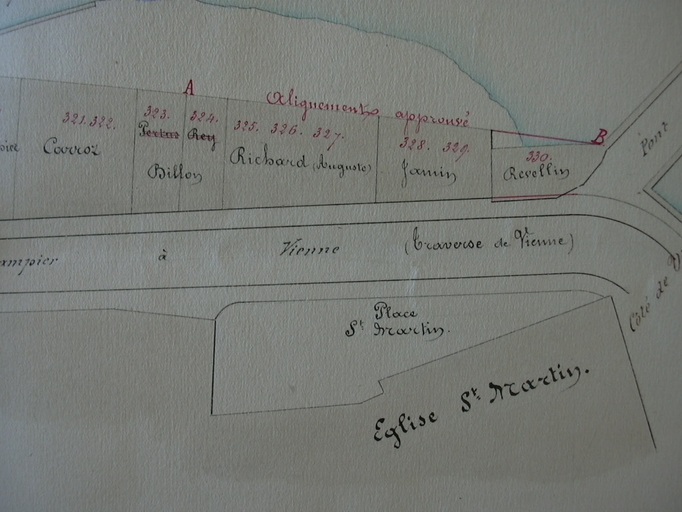 A
Alignements approuvé
B
321.322.
323.
324.
325. 326. 327.
328. 329.
330.
Carroz
Pertus
Rey
Billon
Richard (Auguste)
Jamin
Revellin
Pont
à Vienne (Traverse de Vienne)
Place
St Martin.
Eglise St Martin.
Côté de